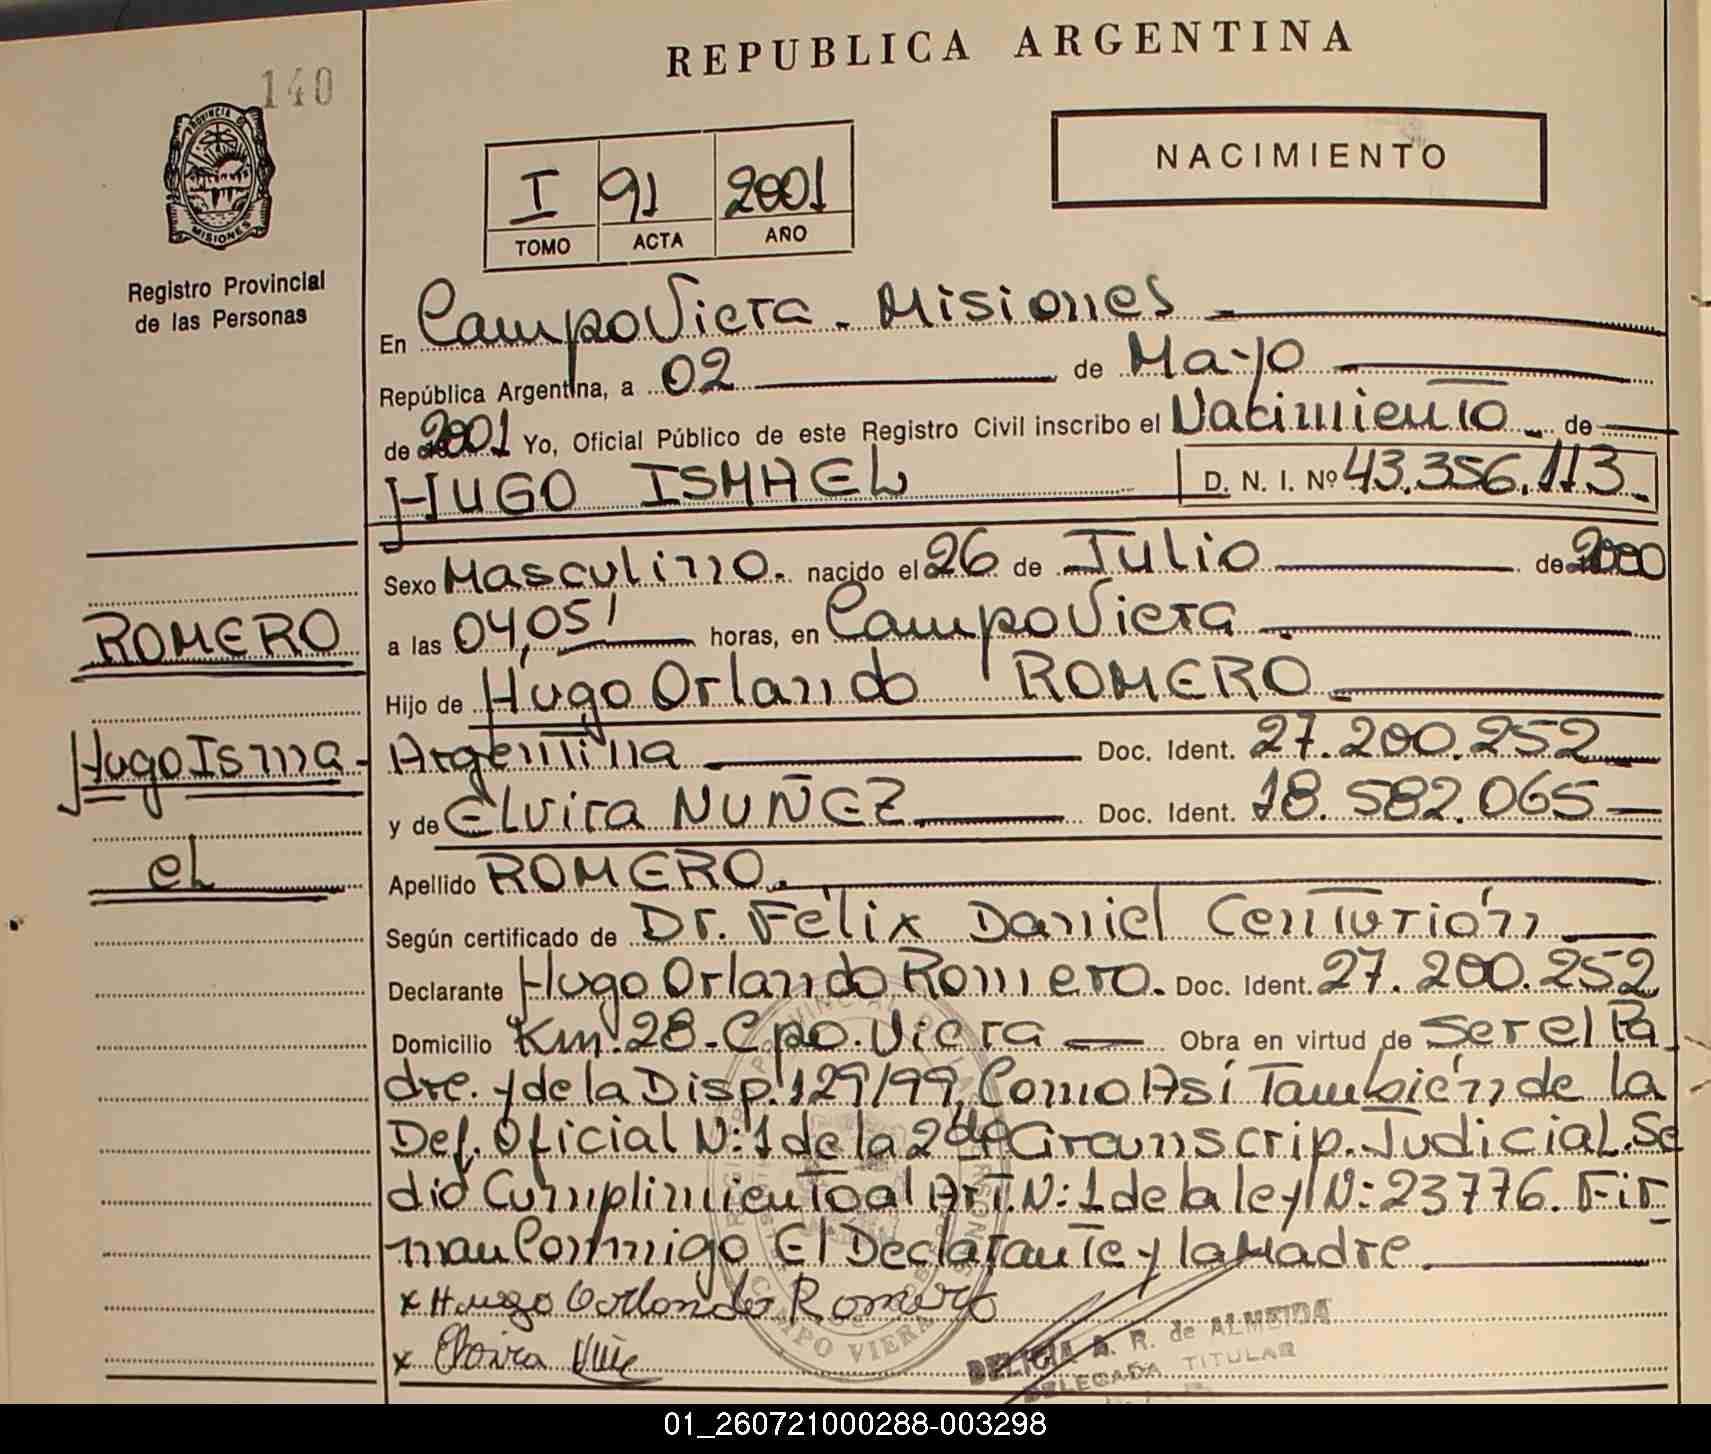 140
REPUBLICA ARGENTINA
PROVINCIA DE
MISIONES
Registro Provincial
de las Personas
NACIMIENTO
I 91 2001
TOMO ACTA AÑO
En Campo Viera - Misiones
República Argentina, a 02 de Mayo
de 2001 Yo, Oficial Público de este Registro Civil inscribo el Nacimiento de
HUGO ISMAEL D. N. I. Nº 43.356.113
Sexo Masculino. nacido el 26 de Julio de 2000
a las 04,05' horas, en Campo Viera
Hijo de Hugo Orlando ROMERO
Argentina Doc. Ident. 27.200.252
y de Elvira NUÑEZ Doc. Ident. 18.582.065
Apellido ROMERO.
Según certificado de Dr. Félix Daniel Centurión
Declarante Hugo Orlando Romero. Doc. Ident. 27.200.252
Domicilio Km. 28 - Cpo. Viera Obra en virtud de ser el Pa
dre. y de la Disp. 129/99, Como Así También de la
Def. Oficial N: 1 de la 2da Circunscrip. Judicial. Se
dió Cumplimiento al Art. N: 1 de la ley N: 23776. Fir-
man Conmigo El Declarante y la Madre
x Hugo Orlando Romero
x Elvira
ROMERO
Hugo Isma-
el
CAMPO VIERA
DELICIA A. R. de ALMEIDA
DELEGADA TITULAR
01_260721000288-003298